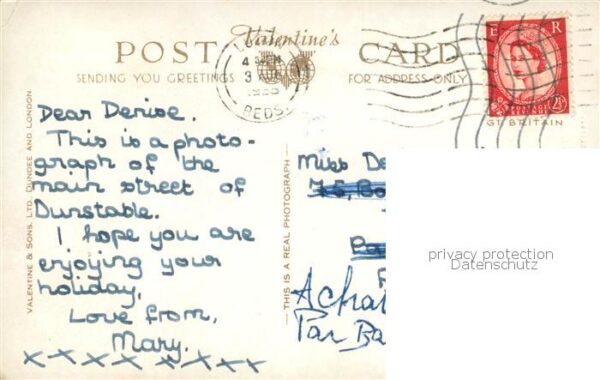 POST Valentine's CARD
SENDING YOU GREETINGS FOR ADDRESS ONLY
BEDS.
E R
POSTAGE REVENUE
2½D
GT. BRITAIN
Dear Denise.
This is a photo-
graph of the
main street of
Dunstable.
I hope you are
enjoying your
holiday.
Love from,
Mary.
x x x x x x x x
VALENTINE & SONS, LTD. DUNDEE AND LONDON
—THIS IS A REAL PHOTOGRAPH—
Miss De
75, Bo
Par Ba
privacy protection
Datenschutz